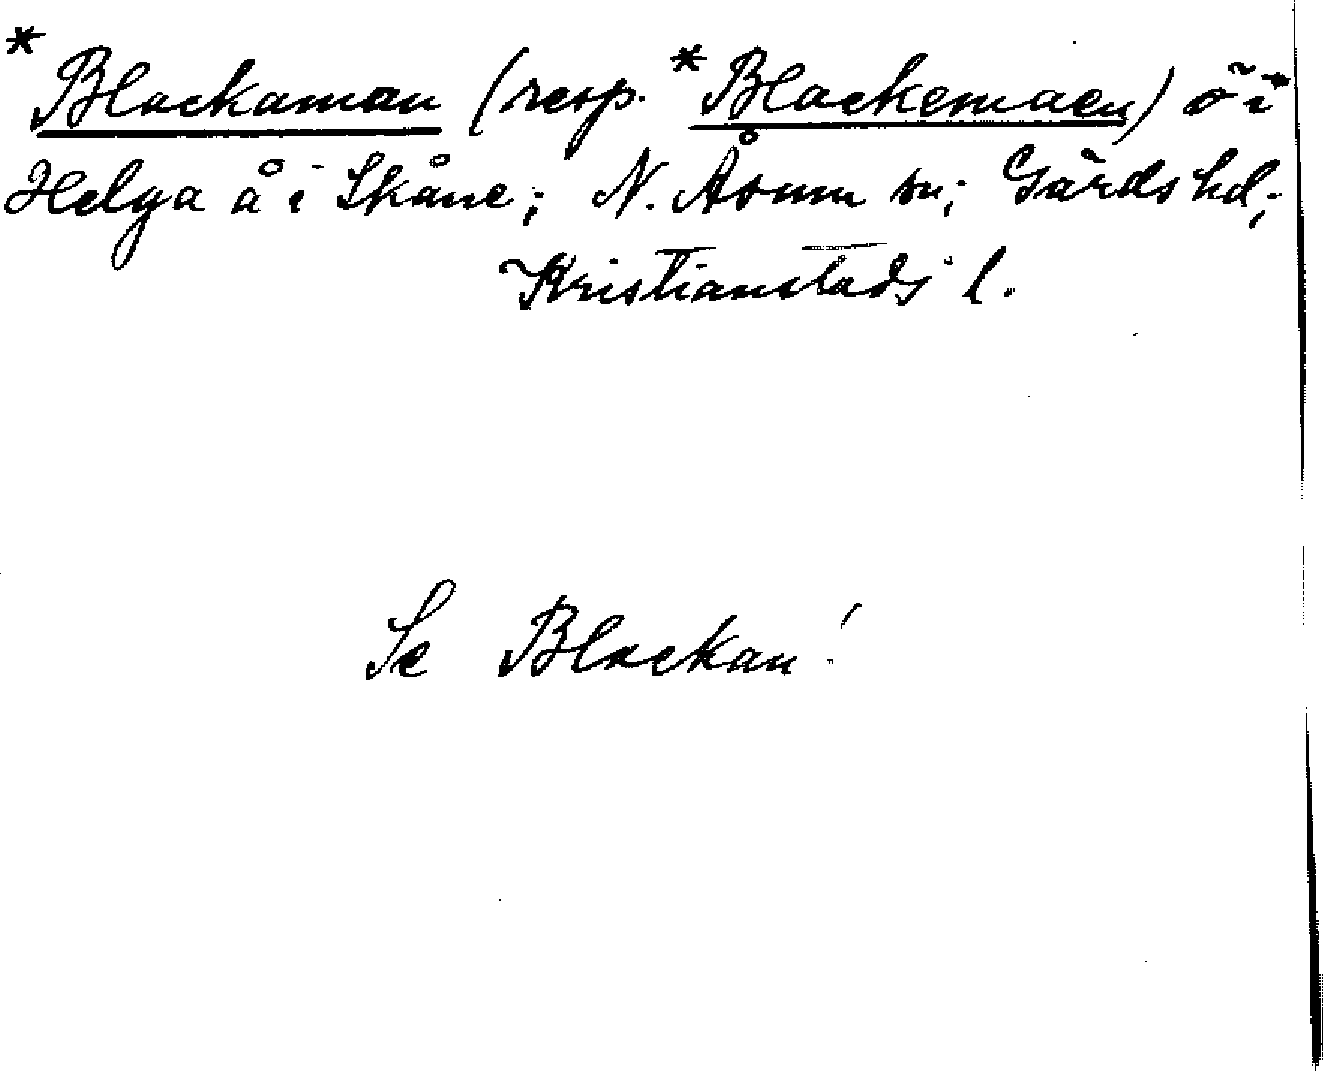 *Blackaman (resp. *Blackemaen) ö i
Helga å i Skåne; N. Åsum sn; Gärds hd;
Kristianstads l.
Se Blackan!